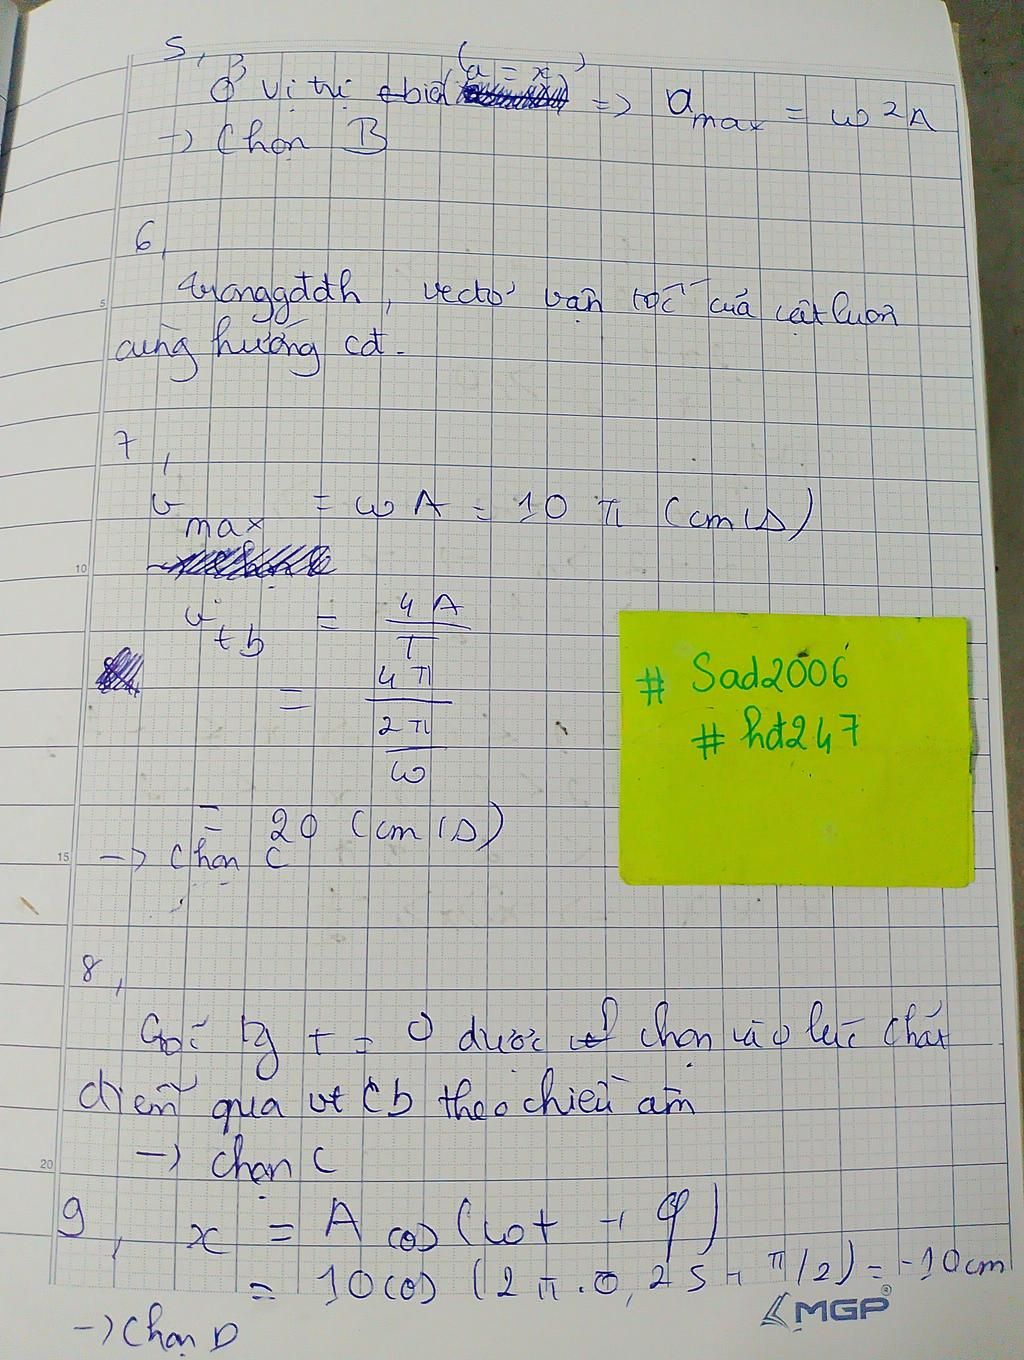 5,
(a = x)
Ở vị trí biên => a max = ω²A
-> Chọn B
6,
trong gđđh, vectơ vận tốc của vật luôn
cùng hướng cđ.
7,
v max = ωA = 10 π (cm/s)
v tb = 4A / T
= 4π / (2π / ω)
= 20 (cm/s)
-> chọn C
# Sad2006
# hđ247
8,
Gốc tg t = 0 được chọn vào lúc chất
điểm qua vt cb theo chiều âm
-> chọn C
9,
x = A cos (ωt + φ)
= 10 cos (2π.0,25 + π/2) = -10 cm
-> Chọn D
MGP
5
10
15
20